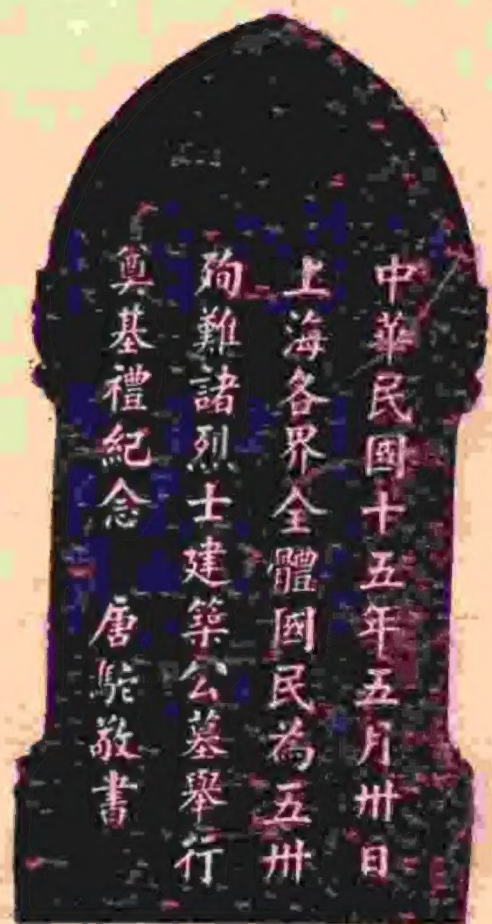 中華民國十五年五月卅日
上海各界全體國民為五卅
殉難諸烈士建築公墓舉行
奠基禮紀念　唐駝敬書